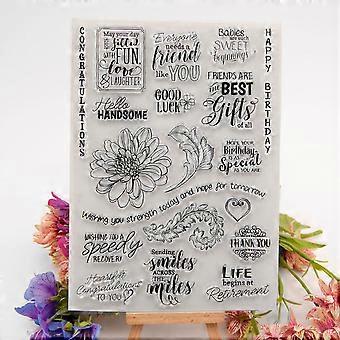 CONGRATULATIONS
May your day
be
filled
WITH
FUN,
love
& LAUGHTER
Everyone
needs a
friend
like YOU
Babies
are such
SWEET
beginnings
HAPPY BIRTHDAY
Hello
HANDSOME
GOOD
LUCK
FRIENDS ARE
THE
BEST
Gifts
of all
HOPE YOUR
Birthday
IS AS
Special
AS YOU ARE
Wishing you strength today and hope for tomorrow
WISHING YOU A
speedy
RECOVERY
THANK YOU
Heartfelt
Congratulations
TO YOU
Sending
smiles
ACROSS
THE
miles
LIFE
begins at
Retirement